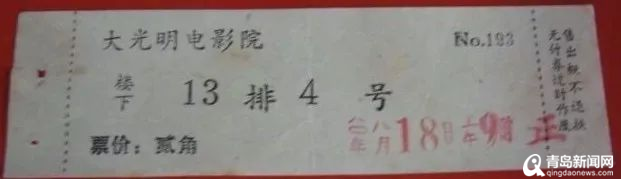 大光明电影院
No.193
楼下 13 排 4 号
八月18日 9
票价：贰角
售出概不退换
无付券过时作废
青岛新闻网
qingdaonews.com